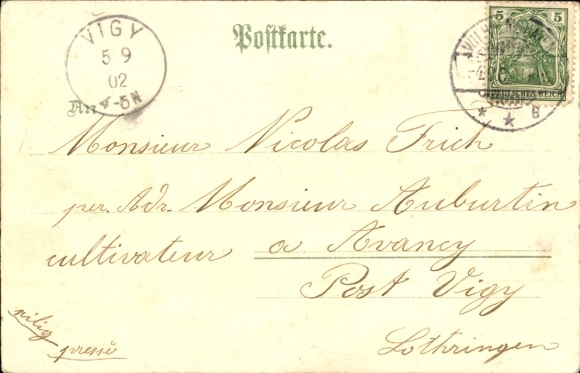 VIGY
5 9
02
4-5N
Postkarte.
5 5
DEUTSCHES REICH
An
Monsieur Nicolas Frich
per. Adr. Monsieur Auburtin
cultivateur a Avancy
Post Vigy
Lothringen
eilig
pressé